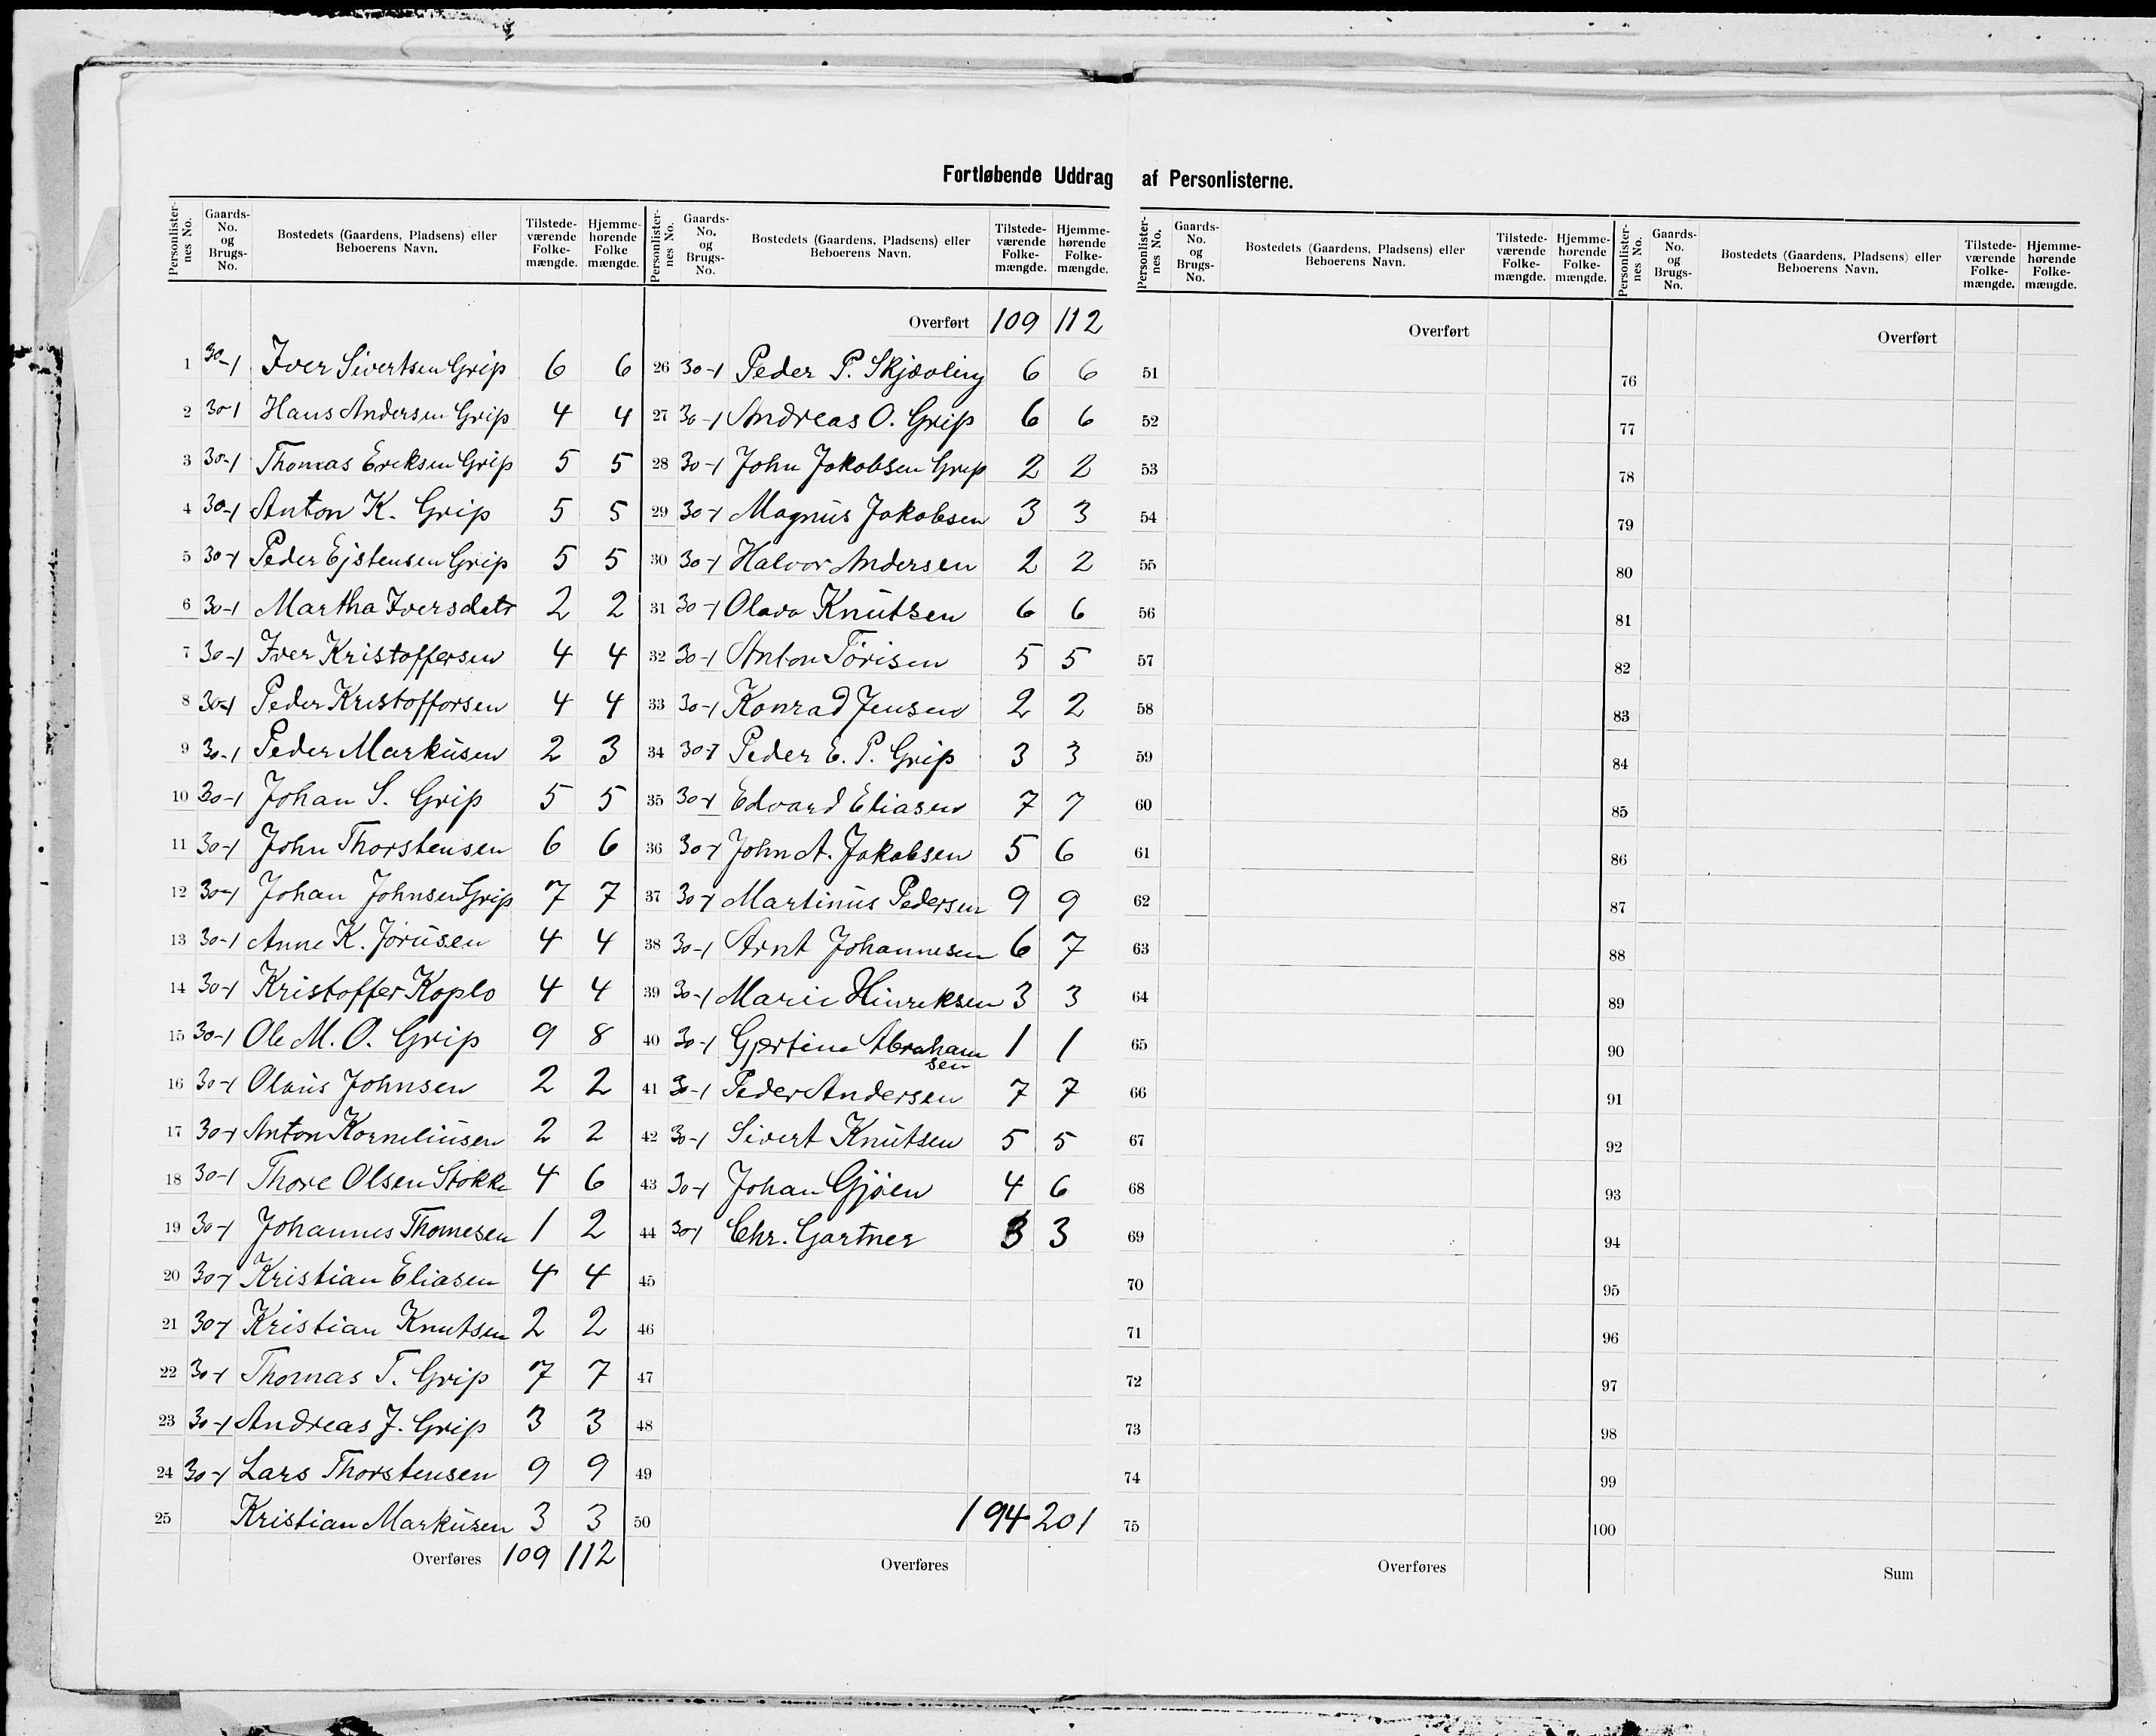 Fortløbende Uddrag af Personlisterne.
Personlister-nes No. Gaards-No. og Brugs-No. Bostedets (Gaardens, Pladsens) eller Beboerens Navn. Tilstede-værende Folke-mængde. Hjemme-hørende Folke mængde.
1 30-1 Iver Sivertsen Grip 6 6
2 30-1 Hans Andersen Grip 4 4
3 30-1 Thomas Ereksen Grip 5 5
4 30-1 Anton K. Grip 5 5
5 30-1 Peder Ejstensen Grip 5 5
6 30-1 Martha Iversdatr 2 2
7 30-1 Iver Kristoffersen 4 4
8 30-1 Peder Kristoffersen 4 4
9 30-1 Peder Markusen 2 3
10 30-1 Johan S. Grip 5 5
11 30-1 John Thorstensen 6 6
12 30-1 Johan Johnsen Grip 7 7
13 30-1 Anne K. Jörusen 4 4
14 30-1 Kristoffer Koplo 4 4
15 30-1 Ole M. O. Grip 9 8
16 30-1 Olaus Johnsen 2 2
17 30-1 Anton Korneliusen 2 2
18 30-1 Thore Olsen Stokke 4 6
19 30-1 Johannes Thomesen 1 2
20 30-1 Kristian Eliasen 4 4
21 30-1 Kristian Knutsen 2 2
22 30-1 Thomas T. Grip 7 7
23 30-1 Andreas J. Grip 3 3
24 30-1 Lars Thorstensen 9 9
25 Kristian Markusen 3 3
Overføres 109 112
Personlister-nes No. Gaards-No. og Brugs-No. Bostedets (Gaardens, Pladsens) eller Beboerens Navn. Tilstede-værende Folke-mængde. Hjemme-hørende Folke-mængde.
Overført 109 112
26 30-1 Peder P. Skjøvling 6 6
27 30-1 Andreas O. Grip 6 6
28 30-1 John Jakobsen Grip 2 2
29 30-1 Magnus Jakobsen 3 3
30 30-1 Halvor Andersen 2 2
31 30-1 Olava Knutsen 6 6
32 30-1 Anton Törisen 5 5
33 30-1 Konrad Jensen 2 2
34 30-1 Peder E. P. Grip 3 3
35 30-1 Edvard Eliasen 7 7
36 30-1 John A. Jakobsen 5 6
37 30-1 Martinus Pedersen 9 9
38 30-1 Arnt Johannesen 6 7
39 30-1 Marie Hinreksen 3 3
40 30-1 Gjertine Abraham 1 1
sen
41 30-1 Peder Andersen 7 7
42 30-1 Sivert Knutsen 5 5
43 30-1 Johan Gjöen 4 6
44 30-1 Chr. Gartner 3 3
45
46
47
48
49
50 194 201
Overføres
Personlister-nes No. Gaards-No. og Brugs-No. Bostedets (Gaardens, Pladsens) eller Beboerens Navn. Tilstede-værende Folke-mængde. Hjemme-hørende Folke-mængde.
Overført
51
52
53
54
55
56
57
58
59
60
61
62
63
64
65
66
67
68
69
70
71
72
73
74
75
Overføres
Personlister-nes No. Gaards-No. og Brugs-No. Bostedets (Gaardens, Pladsens) eller Beboerens Navn. Tilstede-værende Folke-mængde. Hjemme-hørende Folke-mængde.
Overført
76
77
78
79
80
81
82
83
84
85
86
87
88
89
90
91
92
93
94
95
96
97
98
99
100
Sum